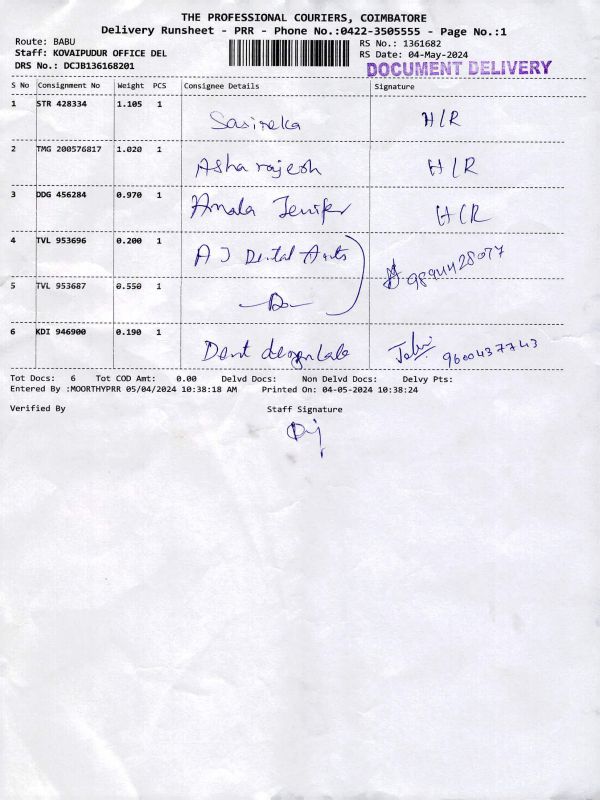 THE PROFESSIONAL COURIERS, COIMBATORE
Delivery Runsheet - PRR - Phone No.:0422-3505555 - Page No.:1
Route: BABU RS No.: 1361682
Staff: KOVAIPUDUR OFFICE DEL RS Date: 04-May-2024
DRS No.: DCJB136168201 DOCUMENT DELIVERY
S No Consignment No Weight PCS Consignee Details Signature
1 STR 428334 1.105 1 Sasireka H/R
2 TMG 200576817 1.020 1 Asha rajesh H/R
3 DDG 456284 0.970 1 Amala Jenifer H/R
4 TVL 953696 0.200 1 A J Dental Arts
5 TVL 953687 0.550 1 Do
6 KDI 946900 0.190 1 Dent design Lab 9600437743
Tot Docs: 6 Tot COD Amt: 0.00 Delvd Docs: Non Delvd Docs: Delvy Pts:
Entered By :MOORTHYPRR 05/04/2024 10:38:18 AM Printed On: 04-05-2024 10:38:24
Verified By Staff Signature